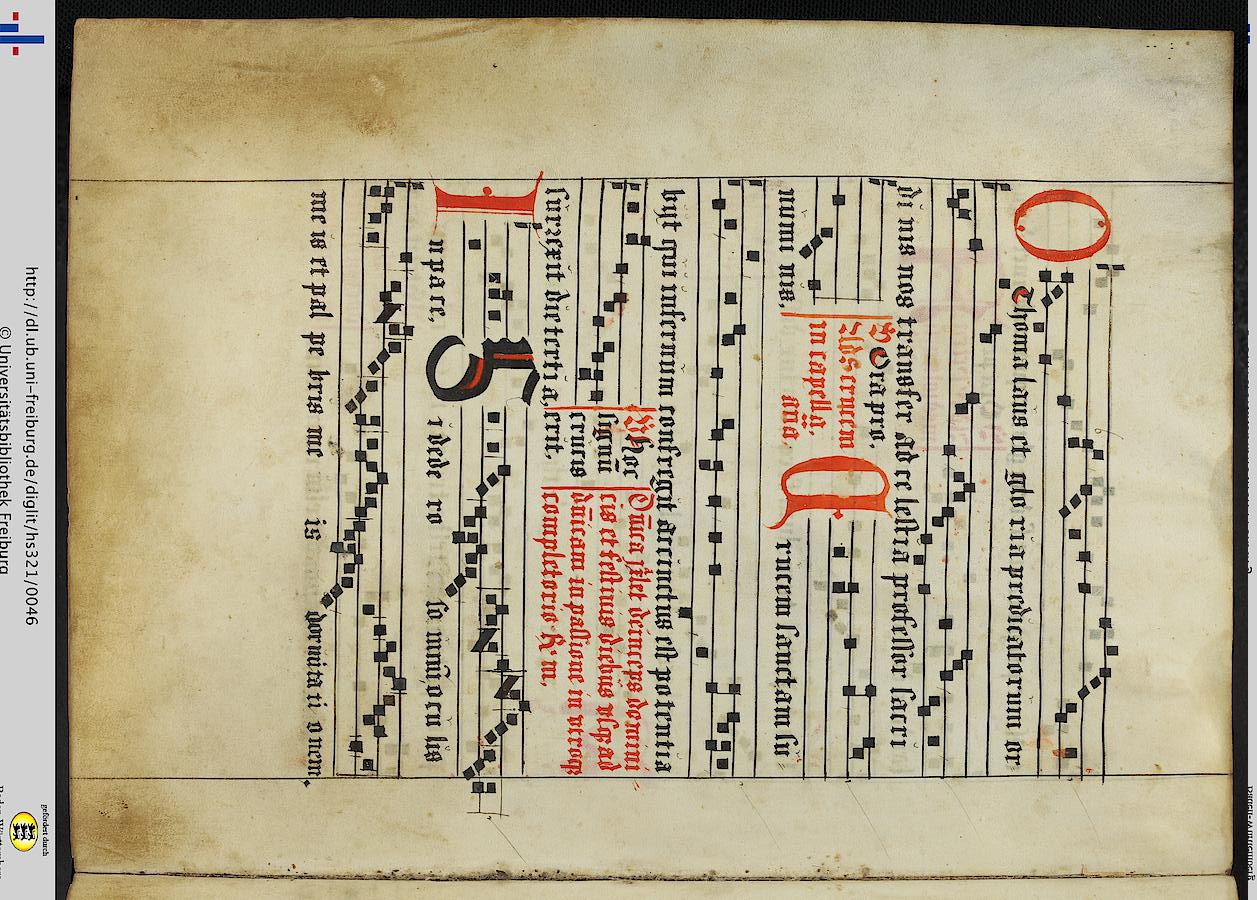 O Thoma laus et glo ria predicatorum or
di nis nos transfer ad ce lestia professor sacri
numi nis. V Ora pro. Ad crucem in capella. ana. Crucem sanctam su
byt qui infernum confregit accinctus est potentia
surrexit die terti a. V hoc signū crucis erit.
Dnīca
cis et festiuis diebus usqz ad
dnīcam in passione in utroqz
completorio R. in.
I n pace. S i dede ro so mnū ocu lis
me is et pal pe bris me is dormita ti onem.
http://dl.ub.uni-freiburg.de/diglit/hs321/0046
© Universitätsbibliothek Freiburg
gefördert durch